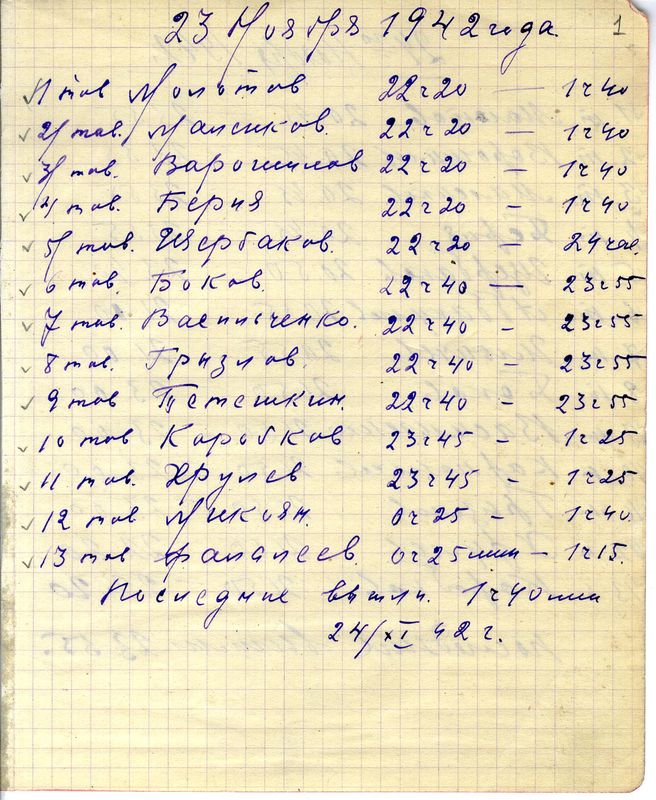 23 Ноября 1942 года. 1
1 тов Молотов 22ч20 — 1ч40
2/ тов. Маленков. 22ч20 — 1ч40
3/ тов. Варошилов 22ч20 — 1ч40
4/ тов. Берия 22ч20 — 1ч40
5/ тов. Щербаков. 22ч20 — 24час.
6 тов. Боков. 22ч40 — 23ч55
7 тов. Васильченко. 22ч40 - 23ч55
8 тов. Грызлов. 22ч40 - 23ч55
9 тов Тетешкин. 22ч40 - 23ч55
10 тов Коробков 23ч45 - 1ч25
11 тов. Хрулев 23ч45 - 1ч25
12 тов Микоян. 0ч25 - 1ч40.
13 тов Фалалеев. 0ч25мин - 1ч15.
Последние вышли. 1ч40мин
24/XI 42 г.